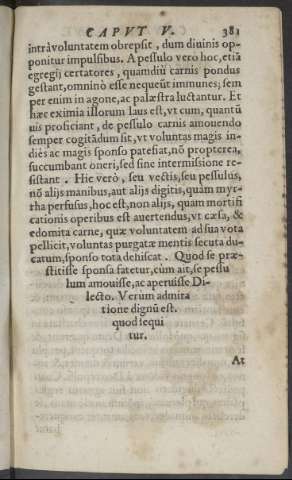 CAPVT V. 381
intrà voluntatem obrepsit, dum diuinis op-
ponitur impulsibus. A pessulo verò hoc, etiã
egregij certatores, quamdiu carnis pondus
gestant, omninò esse nequeũt immunes; sem
per enim in agone, ac palæstra luctantur. Et
hæc eximia illorum laus est, vt cum, quantũ
uis proficiant, de pessulo carnis amouendo
semper cogitãdum sit, vt voluntas magis in-
diès ac magis sponso patefiat, nõ propterea,
succumbant oneri, sed sine intermissione re-
sistant. Hic verò, seu vectis, seu pessulus,
nõ alijs manibus, aut alijs digitis, quàm myr-
rha perfusus, hoc est, non alijs, quàm mortifi
cationis operibus est auertendus, vt cæsa, &
edomita carne, quæ voluntatem ad sua vota
pellicit, voluntas purgatæ mentis secuta du-
catum, sponso tota dehiscat. Quod se præ-
stitisse sponsa fatetur, cùm ait, se pessu
lum amouisse, ac aperuisse Di-
lecto. Verum admira
tione dignũ est.
quod sequi
tur.
At